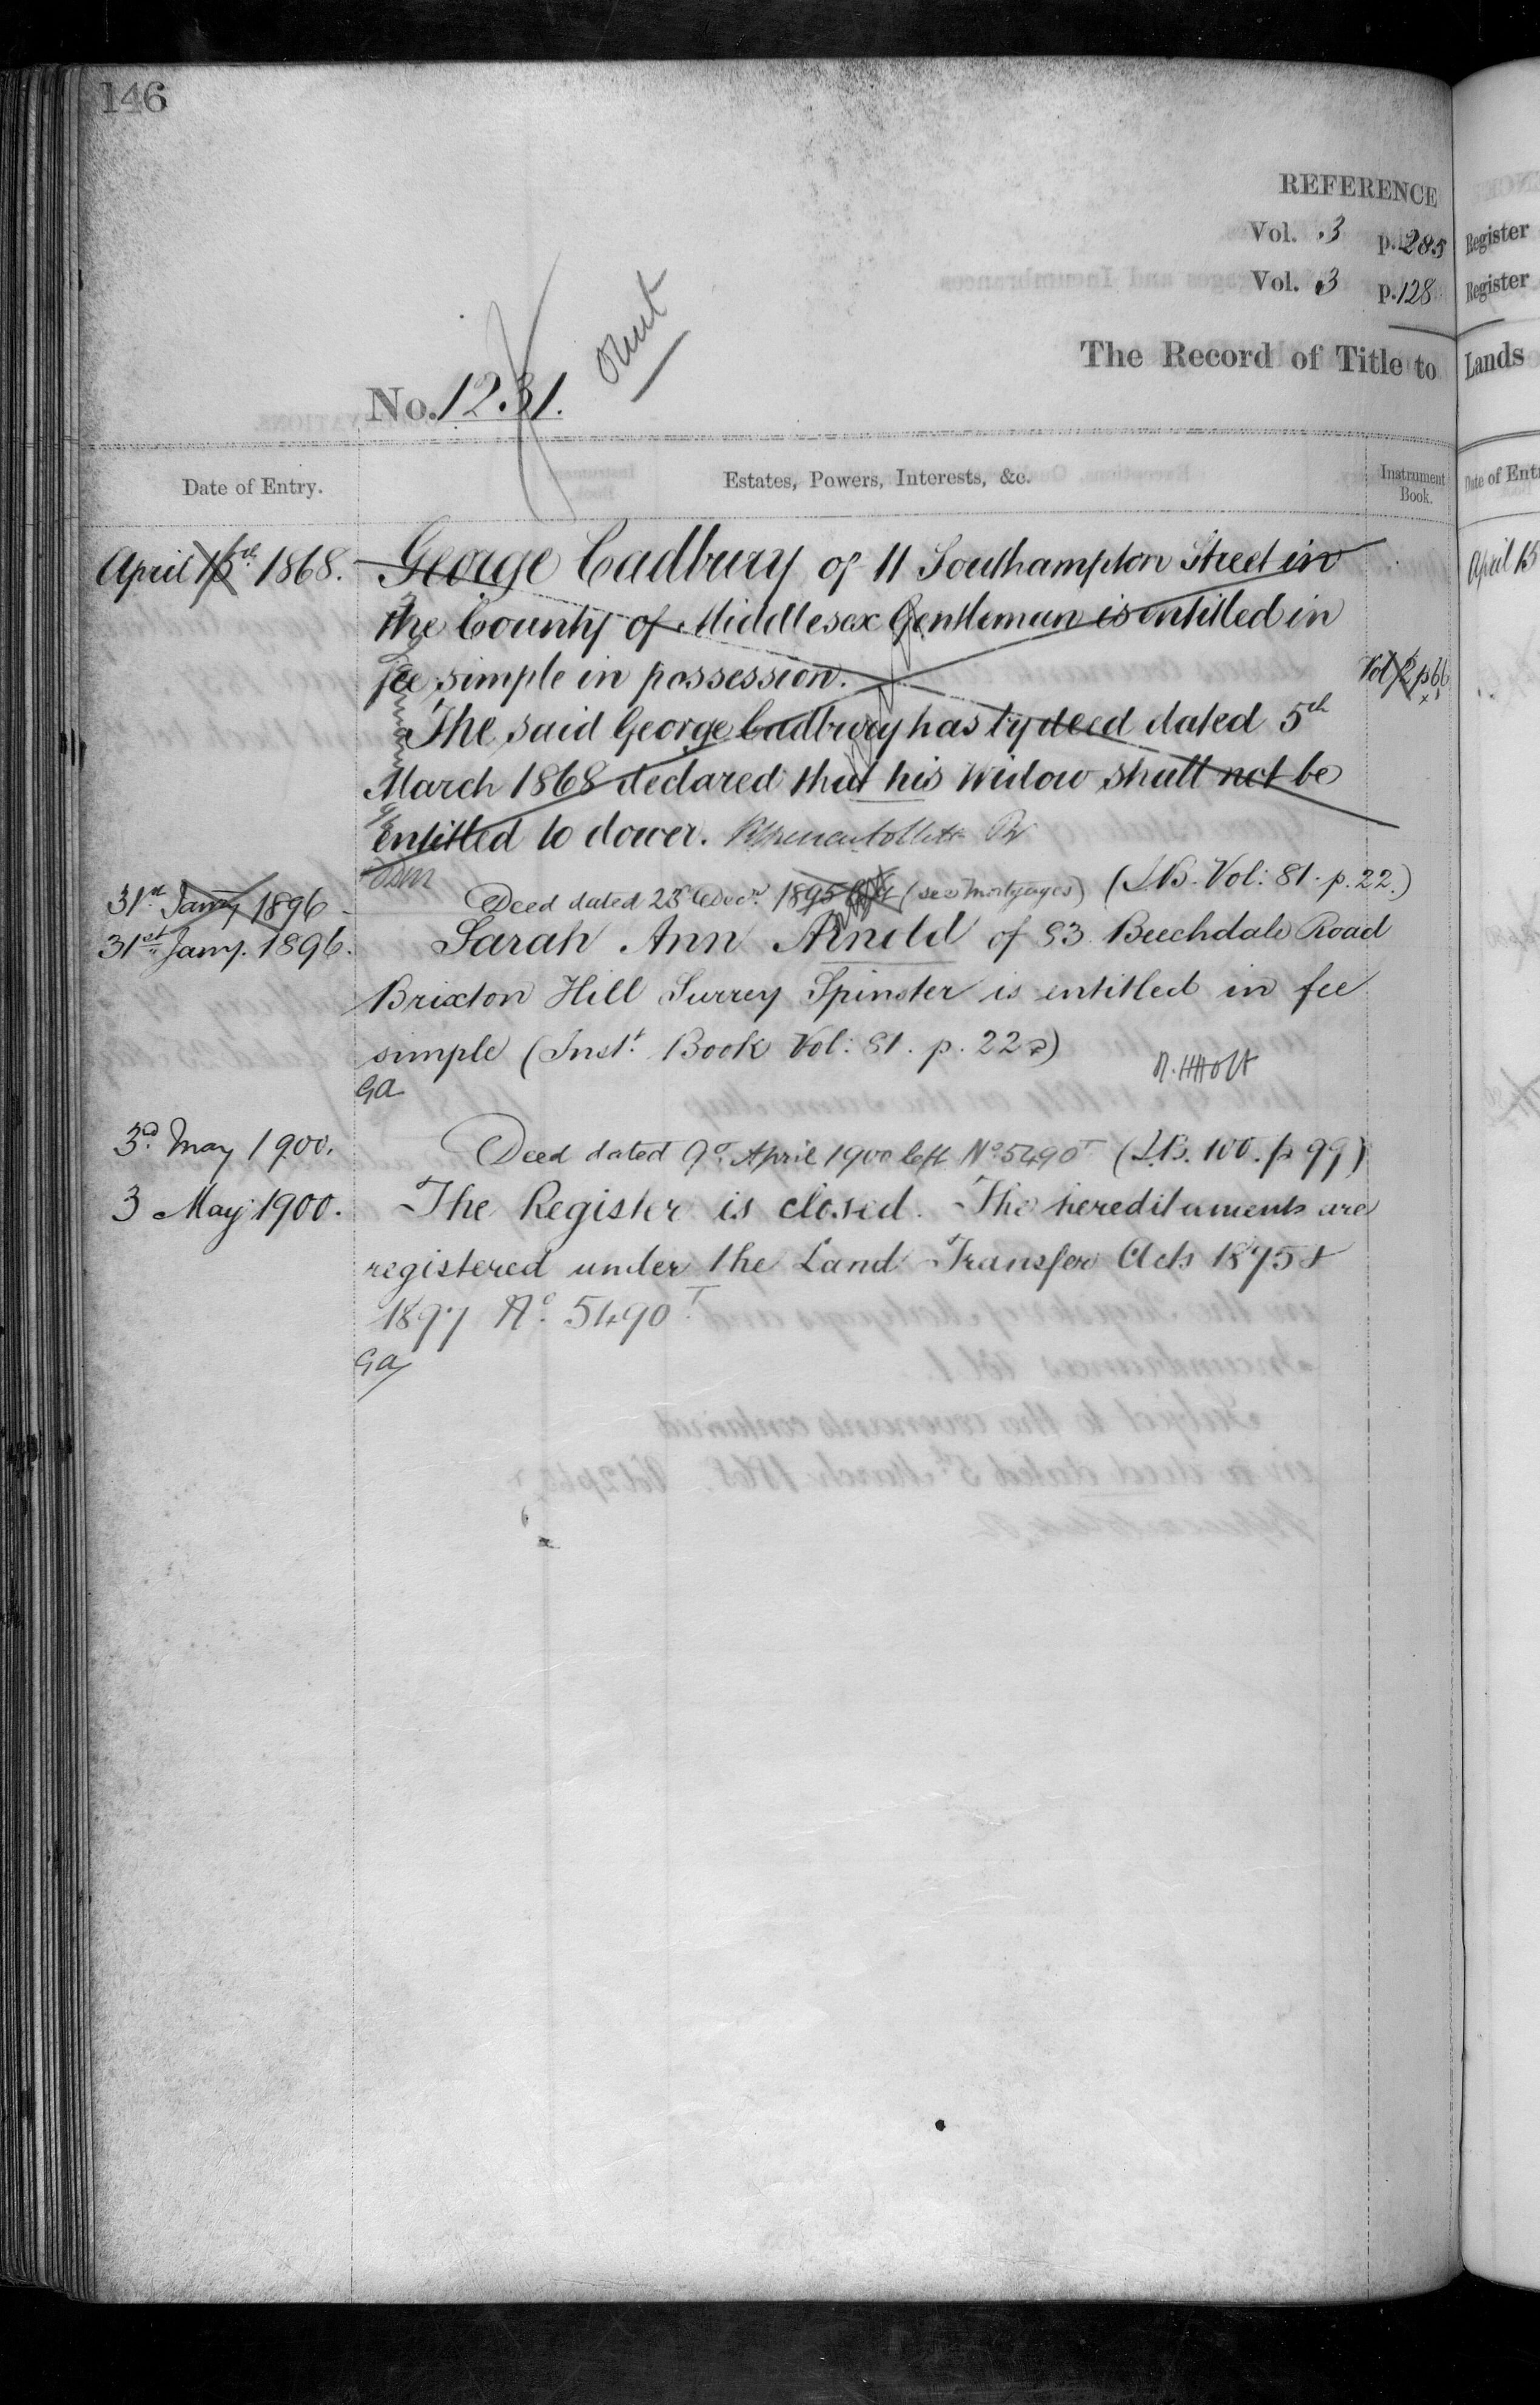 146
REFERENCE
Vol. 3 p. 285
Vol. 3 p. 128
Register
Register
The Record of Title to
Lands
No. 1231.
Date of Entry.
Estates, Powers, Interests, &c.
Instrument Book.
April 15th 1868. George Cadbury of 11 Southampton Street in
the County of Middlesex Gentleman is entitled in
fee simple in possession. Vol 2 p 66
The said George Cadbury has by deed dated 5th
March 1868 declared that his Widow shall not be
entitled to dower.
31st Jany 1896 Deed dated 23rd Decr. 1895 (see Mortgages) (I.B. Vol: 81. p. 22.)
31st Jany. 1896. Sarah Ann Arnold of 83 Beechdale Road
Brixton Hill Surrey Spinster is entitled in fee
simple (Inst. Book Vol: 81. p. 22)
R. H. Holt
GA
3d May 1900. Deed dated 9th April 1900 left No 5490T (I.B. 100. p 99)
3 May 1900. The Register is closed. The hereditaments are
registered under the Land Transfer Acts 1875 &
1897 No. 5490T.
GA
April 15